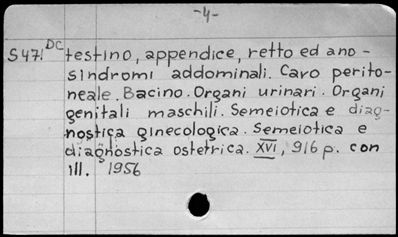 -4-
S471 DC testino, appendice, retto ed ano-
sindromi addominali. Cavo perito-
neale. Bacino. Organi urinari. Organi
genitali maschili. Semeiotica e diag-
nostica ginecologica. Semeiotica e
diagnostica ostetrica. XVI, 916 p. con
ill. 1956